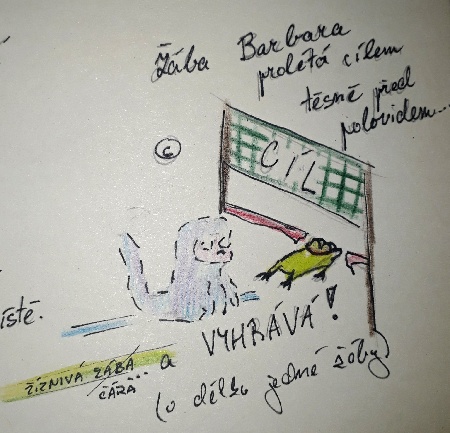 Žába Barbara
prolétá cílem
těsně před
polovidem...
6
CÍL
ístě.
ŽÍZNIVÁ ŽÁBA... a
ČÁRA
VYHRÁVÁ!
(o délku jedné žáby)